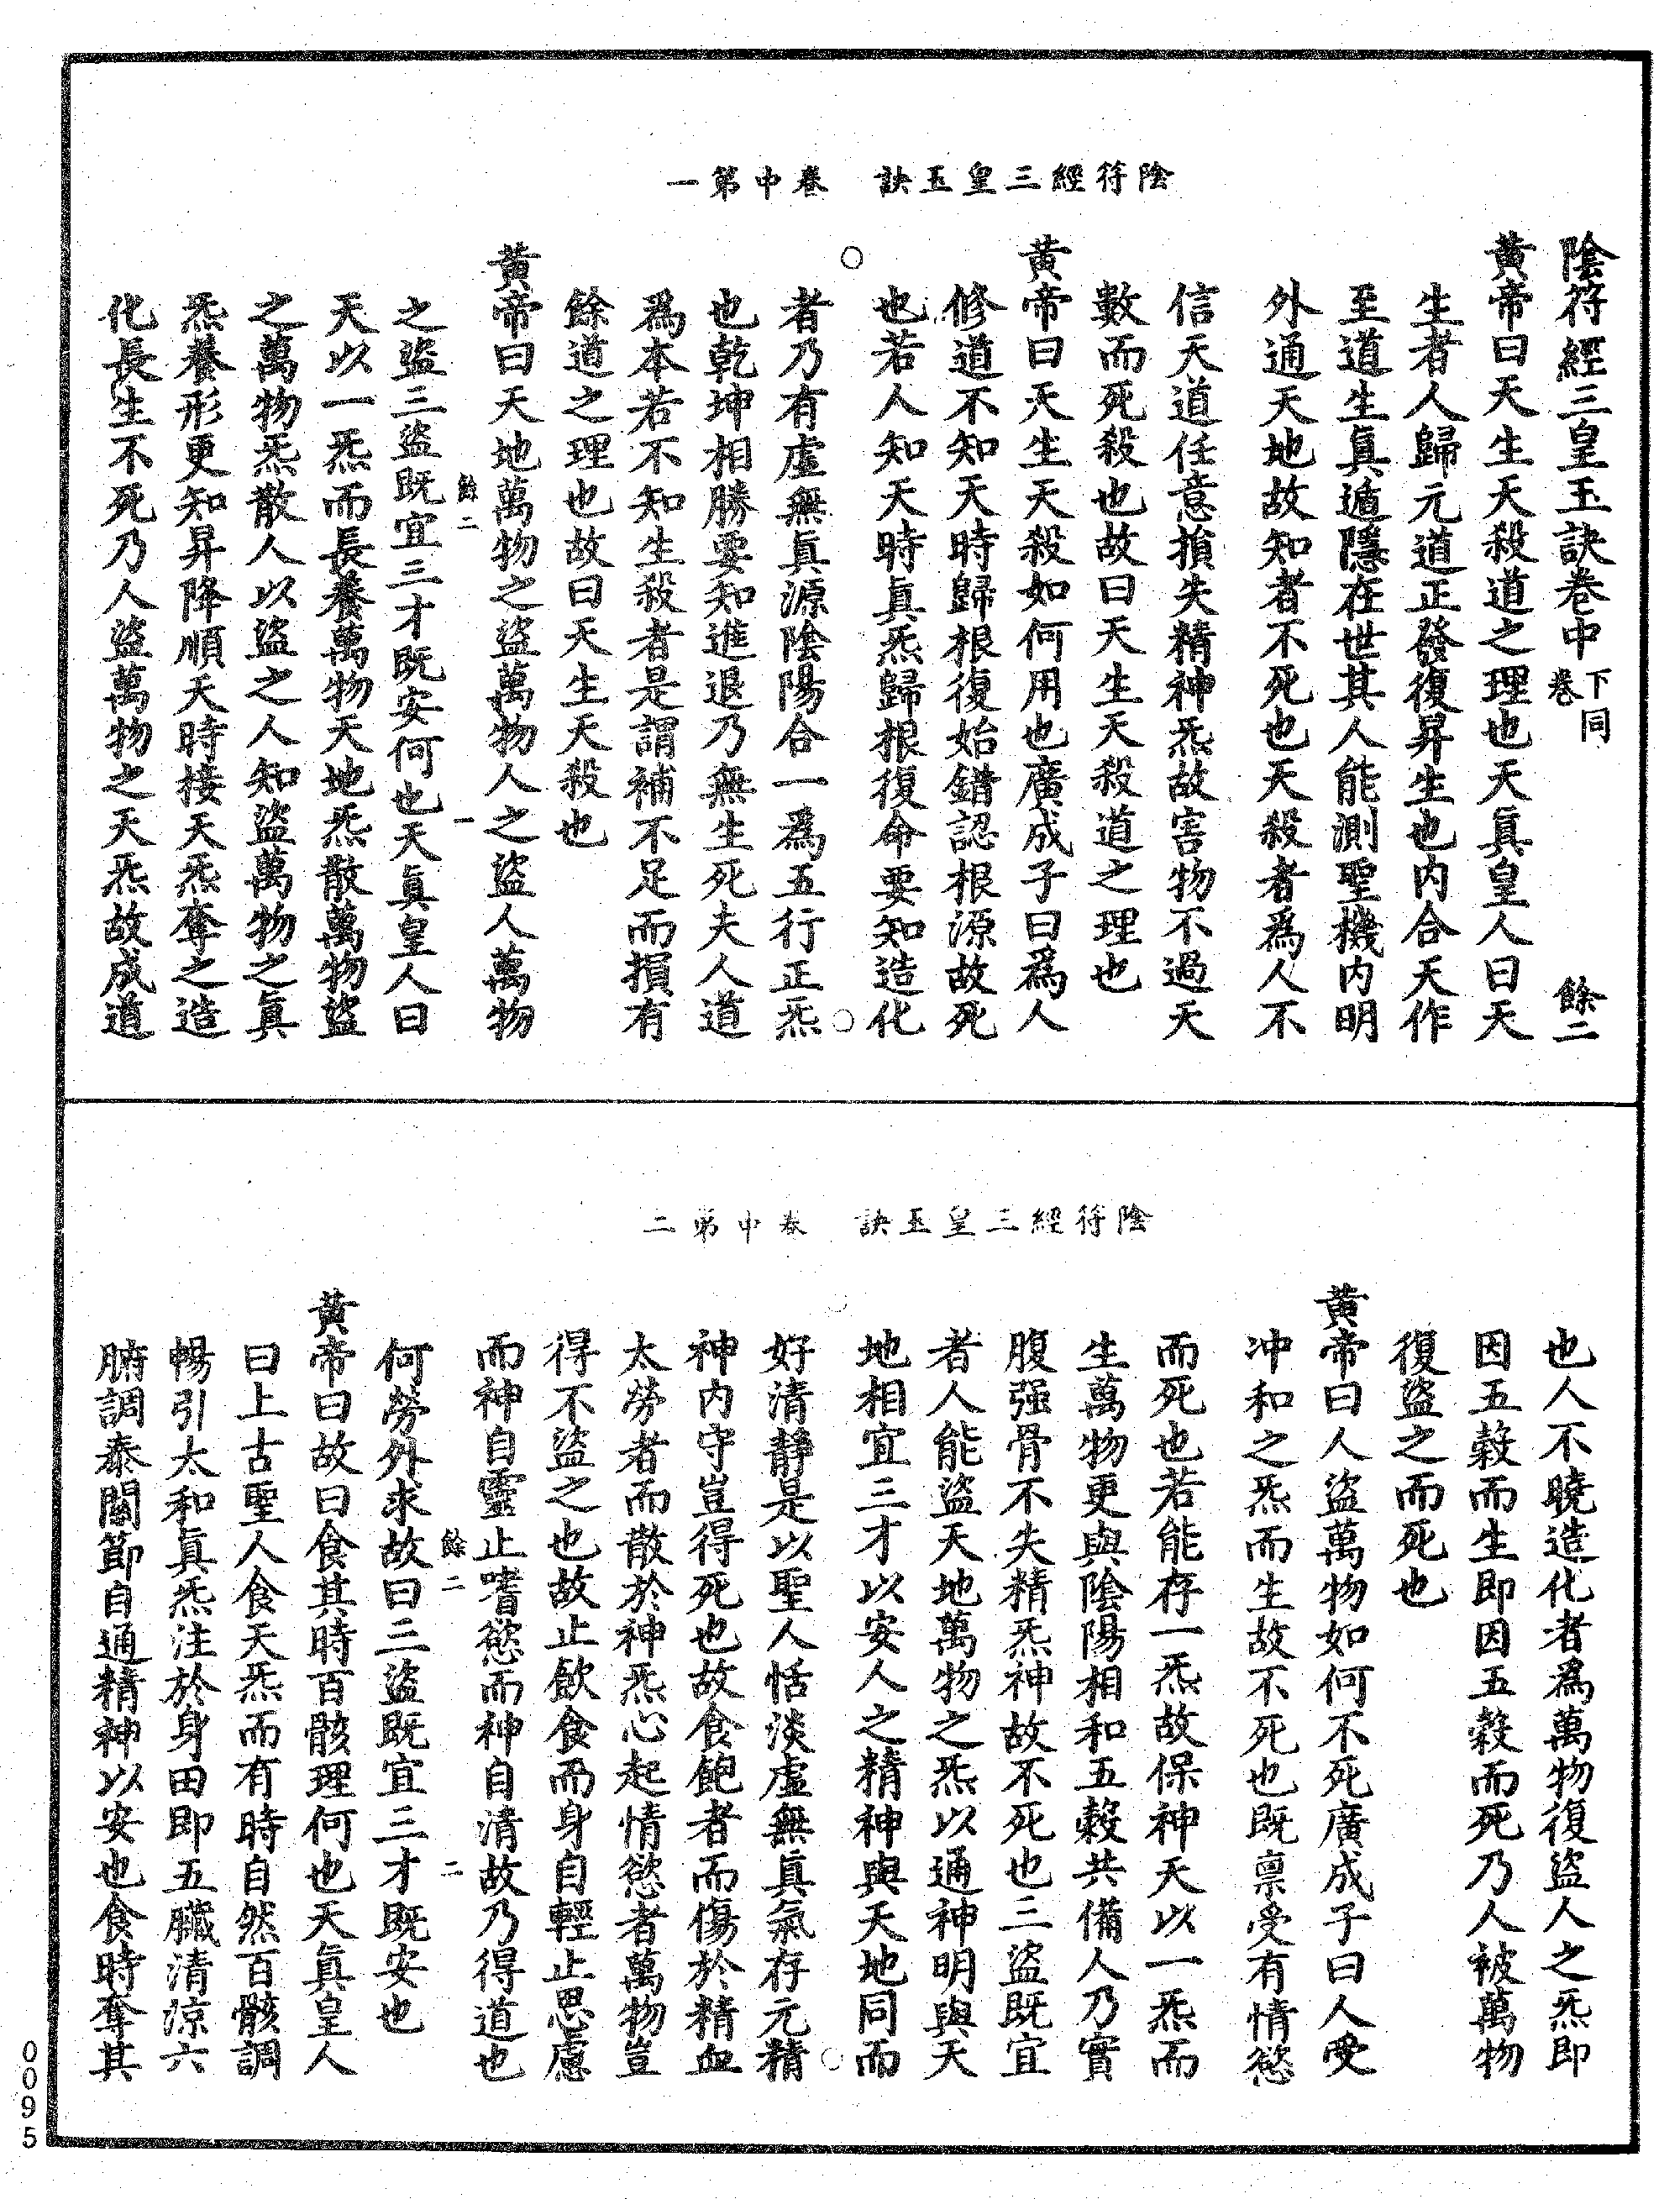 陰符經三皇玉訣　卷中第一
陰符經三皇玉訣卷中下卷同　餘二
黃帝曰天生天殺道之理也天真皇人曰天
生者人歸元道正發復昇生也内合天作
至道生真遁隱在世其人能測聖機内明
外通天地故知者不死也天殺者爲人不
信天道任意損失精神炁故害物不過天
數而死殺也故曰天生天殺道之理也
黃帝曰天生天殺如何用也廣成子曰爲人
修道不知天時歸根復始錯認根源故死
也若人知天時真炁歸根復命要知造化
者乃有虛無真源陰陽合一爲五行正炁
也乾坤相勝要知進退乃無生死夫人道
爲本若不知生殺者是謂補不足而損有
餘道之理也故曰天生天殺也
黃帝曰天地萬物之盜萬物人之盜人萬物
餘二　一
之盜三盜既宜三才既安何也天真皇人曰
天以一炁而長養萬物天地炁散萬物盜
之萬物炁散人以盜之人知盜萬物之真
炁養形更知昇降順天時接天炁奪之造
化長生不死乃人盜萬物之天炁故成道
陰符經三皇玉訣　卷中第二
也人不曉造化者爲萬物復盜人之炁即
因五穀而生即因五穀而死乃人被萬物
復盜之而死也
黃帝曰人盜萬物如何不死廣成子曰人受
冲和之炁而生故不死也既稟受有情慾
而死也若能存一炁故保神天以一炁而
生萬物更與陰陽相和五穀共備人乃實
腹强骨不失精炁神故不死也三盜既宜
者人能盜天地萬物之炁以通神明與天
地相宜三才以安人之精神與天地同而
好清靜是以聖人恬淡虛無真氣存元精
神内守豈得死也故食飽者而傷於精血
太勞者而散於神炁心起情慾者萬物豈
得不盜之也故止飲食而身自輕止思慮
而神自靈止嗜慾而神自清故乃得道也
餘二　二
何勞外求故曰三盜既宜三才既安也
黃帝曰故曰食其時百骸理何也天真皇人
曰上古聖人食天炁而有時自然百骸調
暢引太和真炁注於身田即五臟清涼六
腑調泰關節自通精神以安也食時奪其
0095